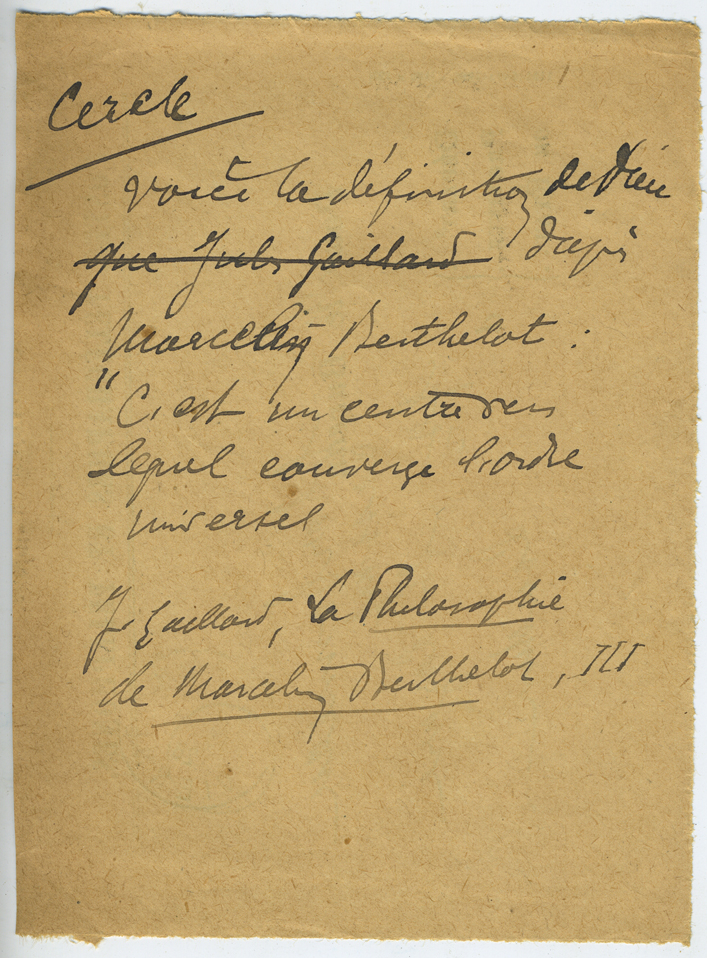 Cercle
Voici la définition de Dieu
que Jules Gaillard d'après
Marcellin Berthelot :
"C'est un centre vers
lequel converge l'ordre
universel
J. Gaillard, La Philosophie
de Marcelin Berthelot, III